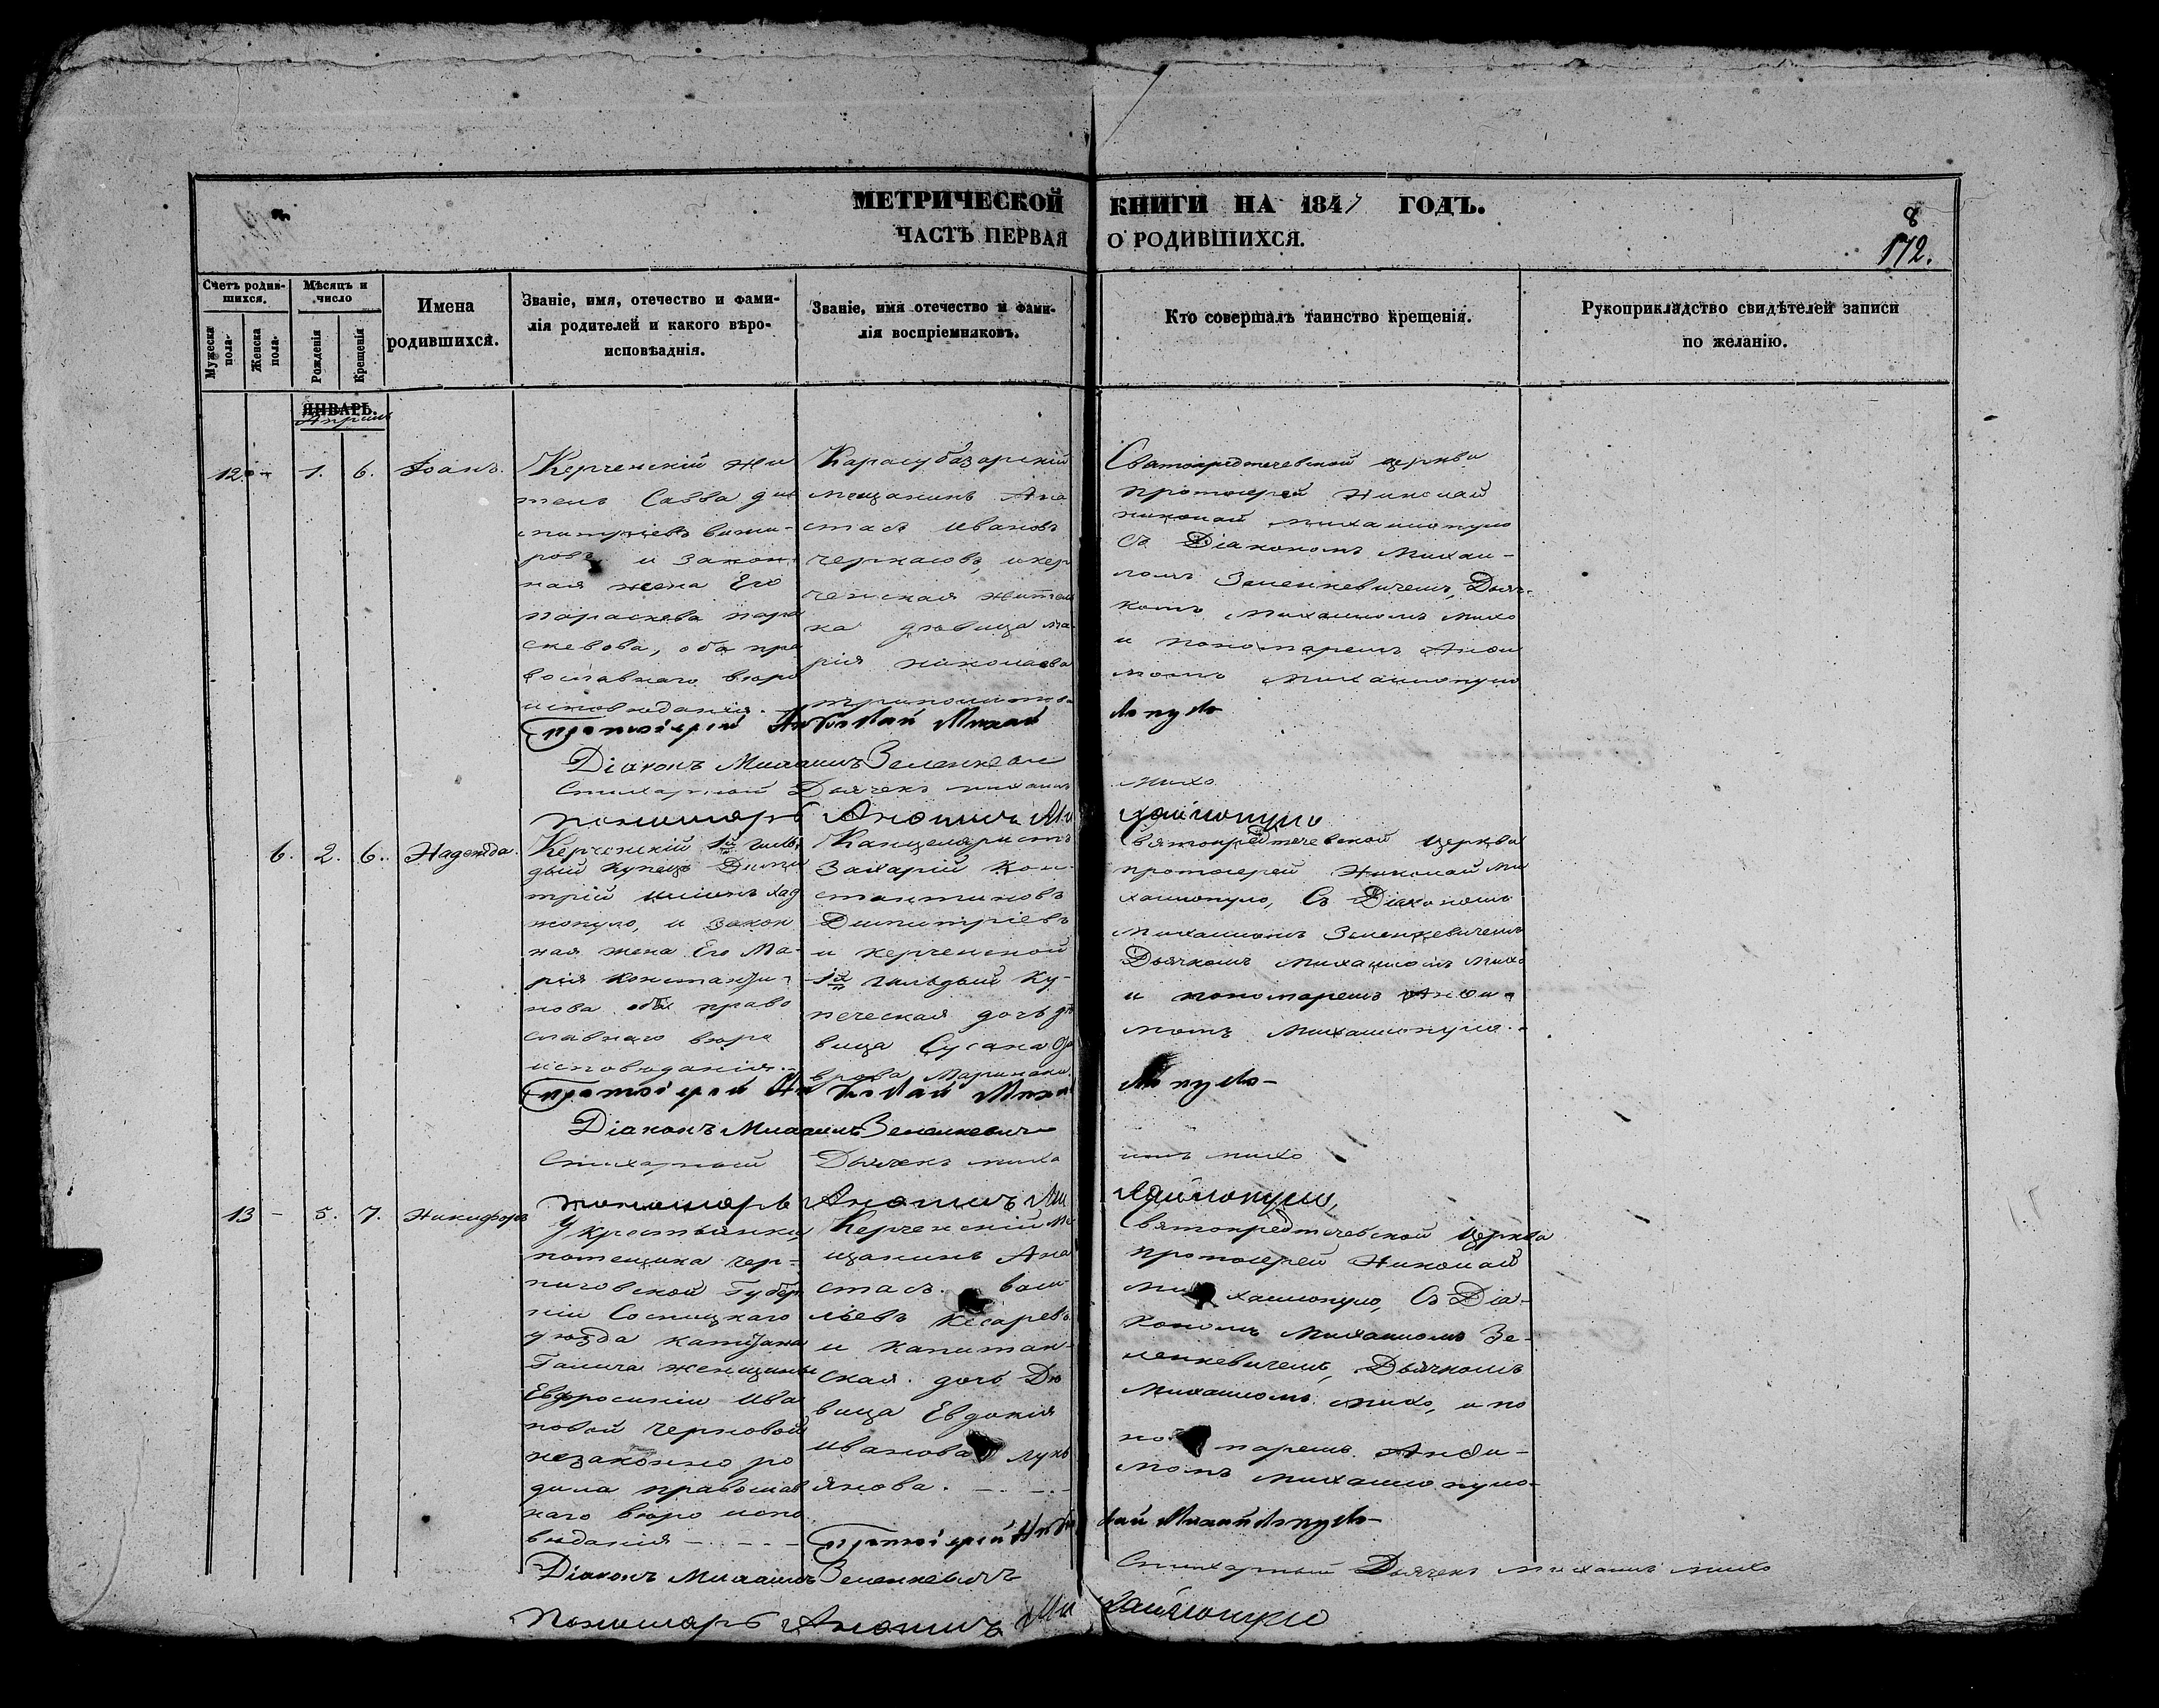 МЕТРИЧЕСКОЙ КНИГИ НА 1847 ГОДЪ.
ЧАСТЬ ПЕРВАЯ О РОДИВШИХСЯ.
8
172.
Счетъ родив-
шихся.
Мужеска
пола.
Женска
пола.
Мѣсяцъ и
число
Рожденія
Крещенія
Имена
родившихся.
Званіе, имя, отечество и фами-
лія родителей и какого вѣро-
исповѣаднія.
Званіе, имя отечество и фами-
лія воспріемниковъ.
Кто совершалъ таинство крещенія.
Рукоприкладство свидѣтелей записи
по желанію.
ЯНВАРЬ.
Апрель
12. - 1. 6. Іоанъ.
Керченскій жи
тель Савва
и закон
ная жена Его
параскева пара
скевова, оба пра
вославнаго вѣро
исповѣданія.
Карасубазарскій
мещанинъ Ана
стасъ Ивановъ
черкасовъ, и кер
ченская жител
ка дѣвица ма
рія николаева
Святопредтечевской церкви
протоіерей Николай
николай михаилопуло
Съ Діакономъ михаи-
ломъ Зеленкевичемъ, Дьяч-
комъ михаиломъ михо
и пономаремъ Анѳи
момъ михаилопуло
Протоіерей Николай Михай
лопуло
Діаконъ Михаилъ Зеленкевич
Стихарный Дьячекъ михаилъ
михо
пономарь Анѳимъ Ми
хайлопуло
6. 2. 6. Надежда.
Керченскій 1й гиль
дыи купецъ Дими
трій хад
жопуло, и закон
ная жена Его Ма-
рія Константи-
нова оба право
славнаго вѣро
исповѣданія.
Канцеляристъ
Захарій Кон-
стантиновъ
Димитріевъ
и керченской
1й гильдыи ку-
печеская дочь дѣ
вица Сусана
Маринаки.
Святопредтечевской церкви
протоіерей Николай ми
хаилопуло, Съ Діакономъ
михаиломъ Зеленкевичемъ
Дьячкомъ михаиломъ михо
и пономаремъ Анѳи-
момъ михаилопуло.
Протоіерей Николай Михай
лопуло-
Діаконъ Михаилъ Зеленкевичъ
Стихарный Дьячекъ миха
илъ михо
пономарь Анѳимъ Ми
хайлопуло,
13 - 5. 7. Никифоръ
У крестьянки
помещика чер-
ниговской Губер
ніи Сосницкаго
уѣзда капитана
женщины
Евфросиніи Ива
новой черновой
незаконно ро
дила православ
наго вѣро испо
вѣданія
Керченскій ме
щанинъ Ана
стасъ васи-
льевъ Кесаревъ
и капитан-
ская дочь Дѣ
вица Евдокія
иванова лукь
янова.
Святопредтечевской церкви
протоіерей Николай
михаилопуло, Съ Діа-
кономъ михаиломъ Зе-
ленкевичемъ, Дьячкомъ
михаиломъ михо, и по
номаремъ Анѳи-
момъ михаилопуло-
Протоіерей Николай Михайлопуло
Діаконъ Михаилъ Зеленкевичъ
Стихарный Дьячекъ михаилъ михо
Пономарь Анѳимъ Ми
хайлопуло